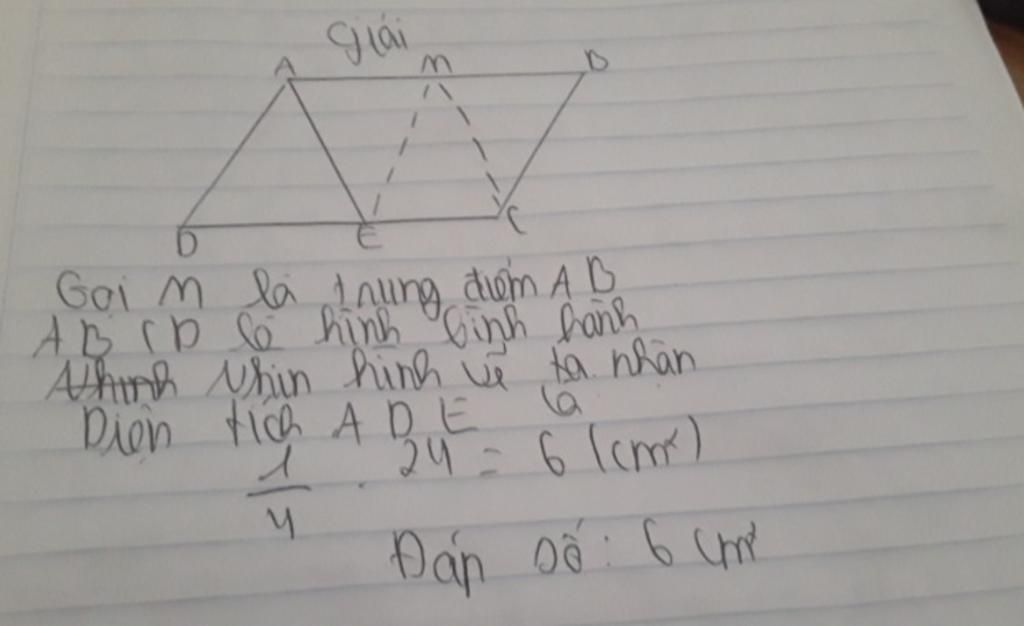 Giải
A M B
D E C
Gọi M là trung điểm AB
ABCD là hình bình hành
Nhình Nhìn hình vẽ ta nhận
Diện tích ADE là
1/4 . 24 = 6 (cm²)
Đáp số: 6 cm²